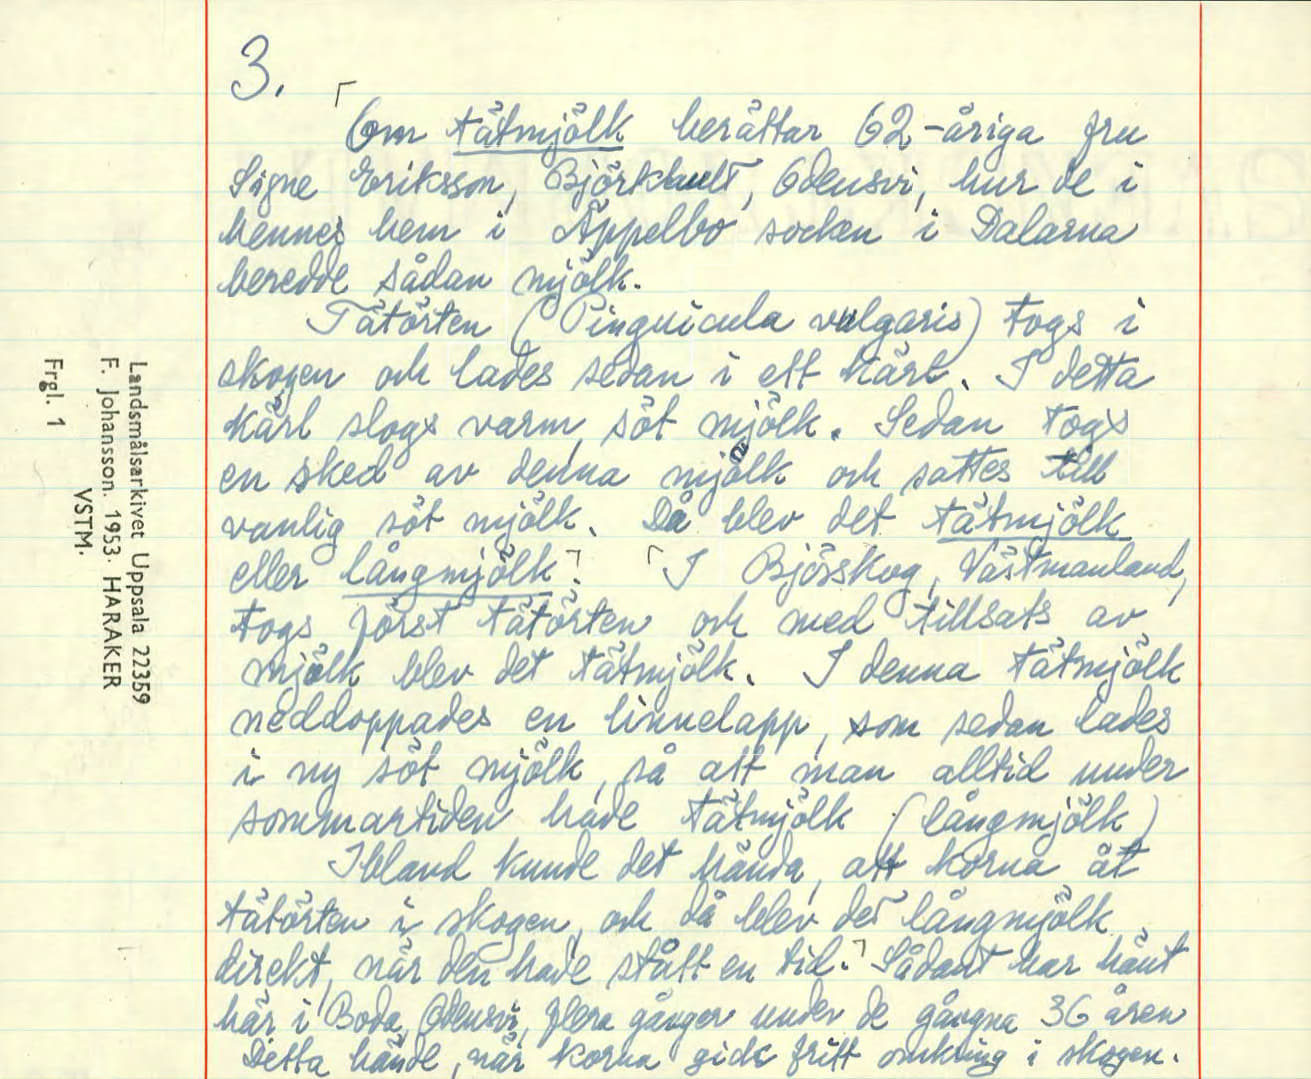 3.
Om tätmjölk berättar 62-åriga fru
Signe Eriksson, Björkhult, Odensvi, hur de i
hennes hem i Äppelbo socken i Dalarna
beredde sådan mjölk.
Tätörten (Pinguicula vulgaris) togs i
skogen och lades sedan i ett kärl. I detta
kärl slogs varm, söt mjölk. Sedan togs
en sked av denna mjölk och sattes till
vanlig söt mjölk. Då blev det tätmjölk
eller långmjölk. I Björskog, Västmanland,
togs först tätörten och med tillsats av
mjölk blev det tätmjölk. I denna tätmjölk
neddoppades en linnelapp, som sedan lades
i ny söt mjölk, så att man alltid under
sommartiden hade tätmjölk (långmjölk)
Ibland kunde det hända, att korna åt
tätörten i skogen, och då blev det långmjölk
direkt, när den hade stått en tid. Sådant har hänt
här i Boda, Odensvi, flera gånger under de gångna 36 åren
Detta hände, när korna gick fritt omkring i skogen.
Landsmålsarkivet Uppsala 22359
F. Johansson. 1953. HARAKER
VSTM.
Frgl. 1